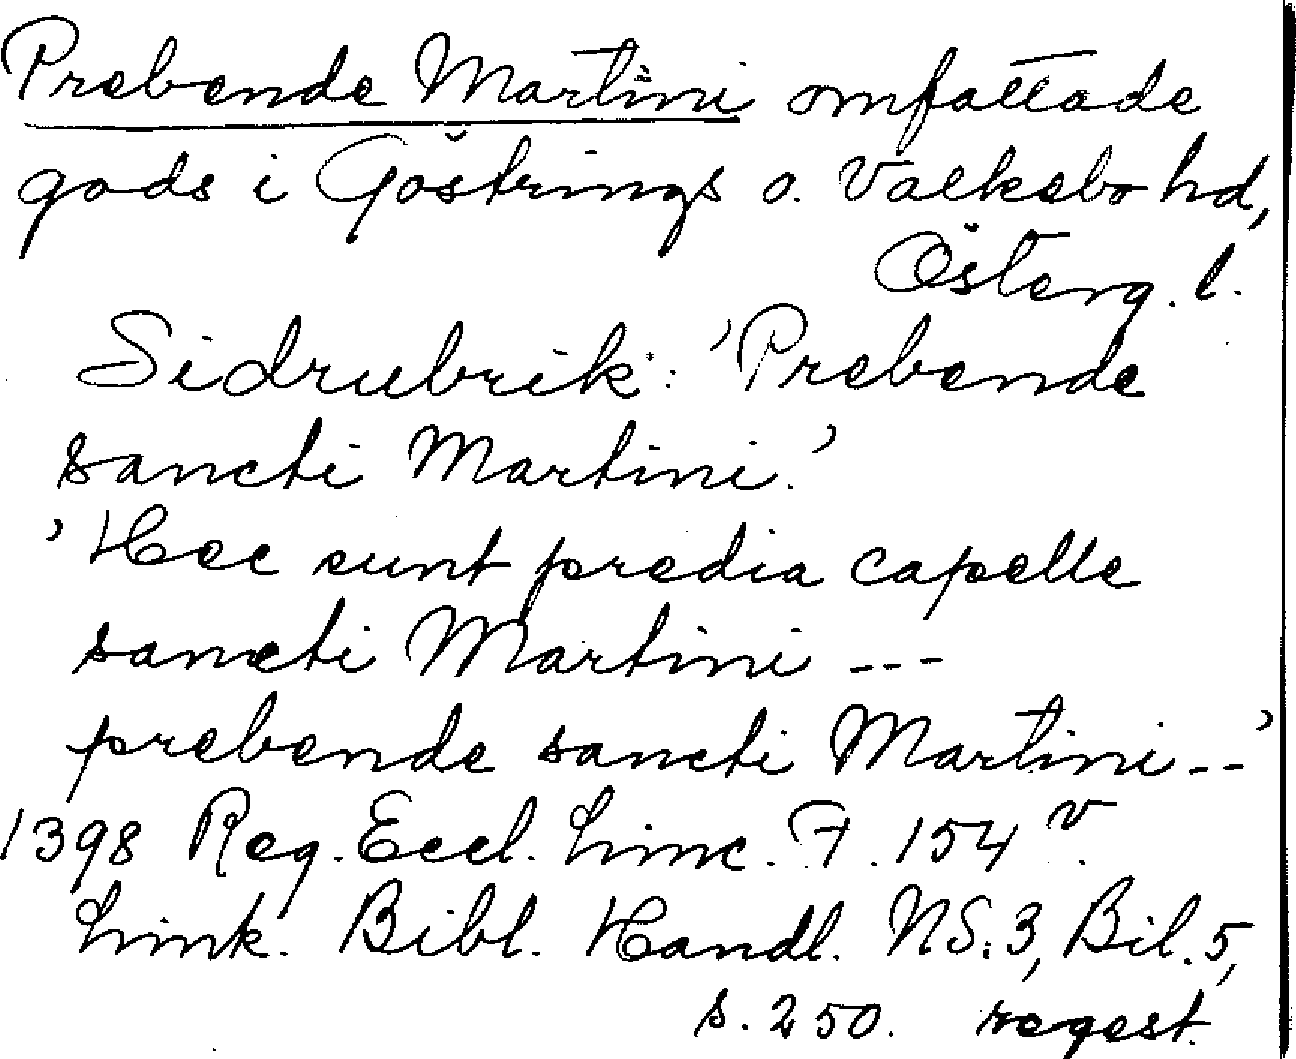 Prebende Martini omfattade
gods i Göstrings o. Valkebo hd,
Österg. l.
Sidrubrik: 'Prebende
sancti Martini.'
'Hec sunt predia capelle
sancti Martini ---
prebende sancti Martini --'
1398 Reg. Eccl. Linc. F. 154 v.
Link. Bibl. Handl. NS. 3, Bil. 5,
s. 250. regest.